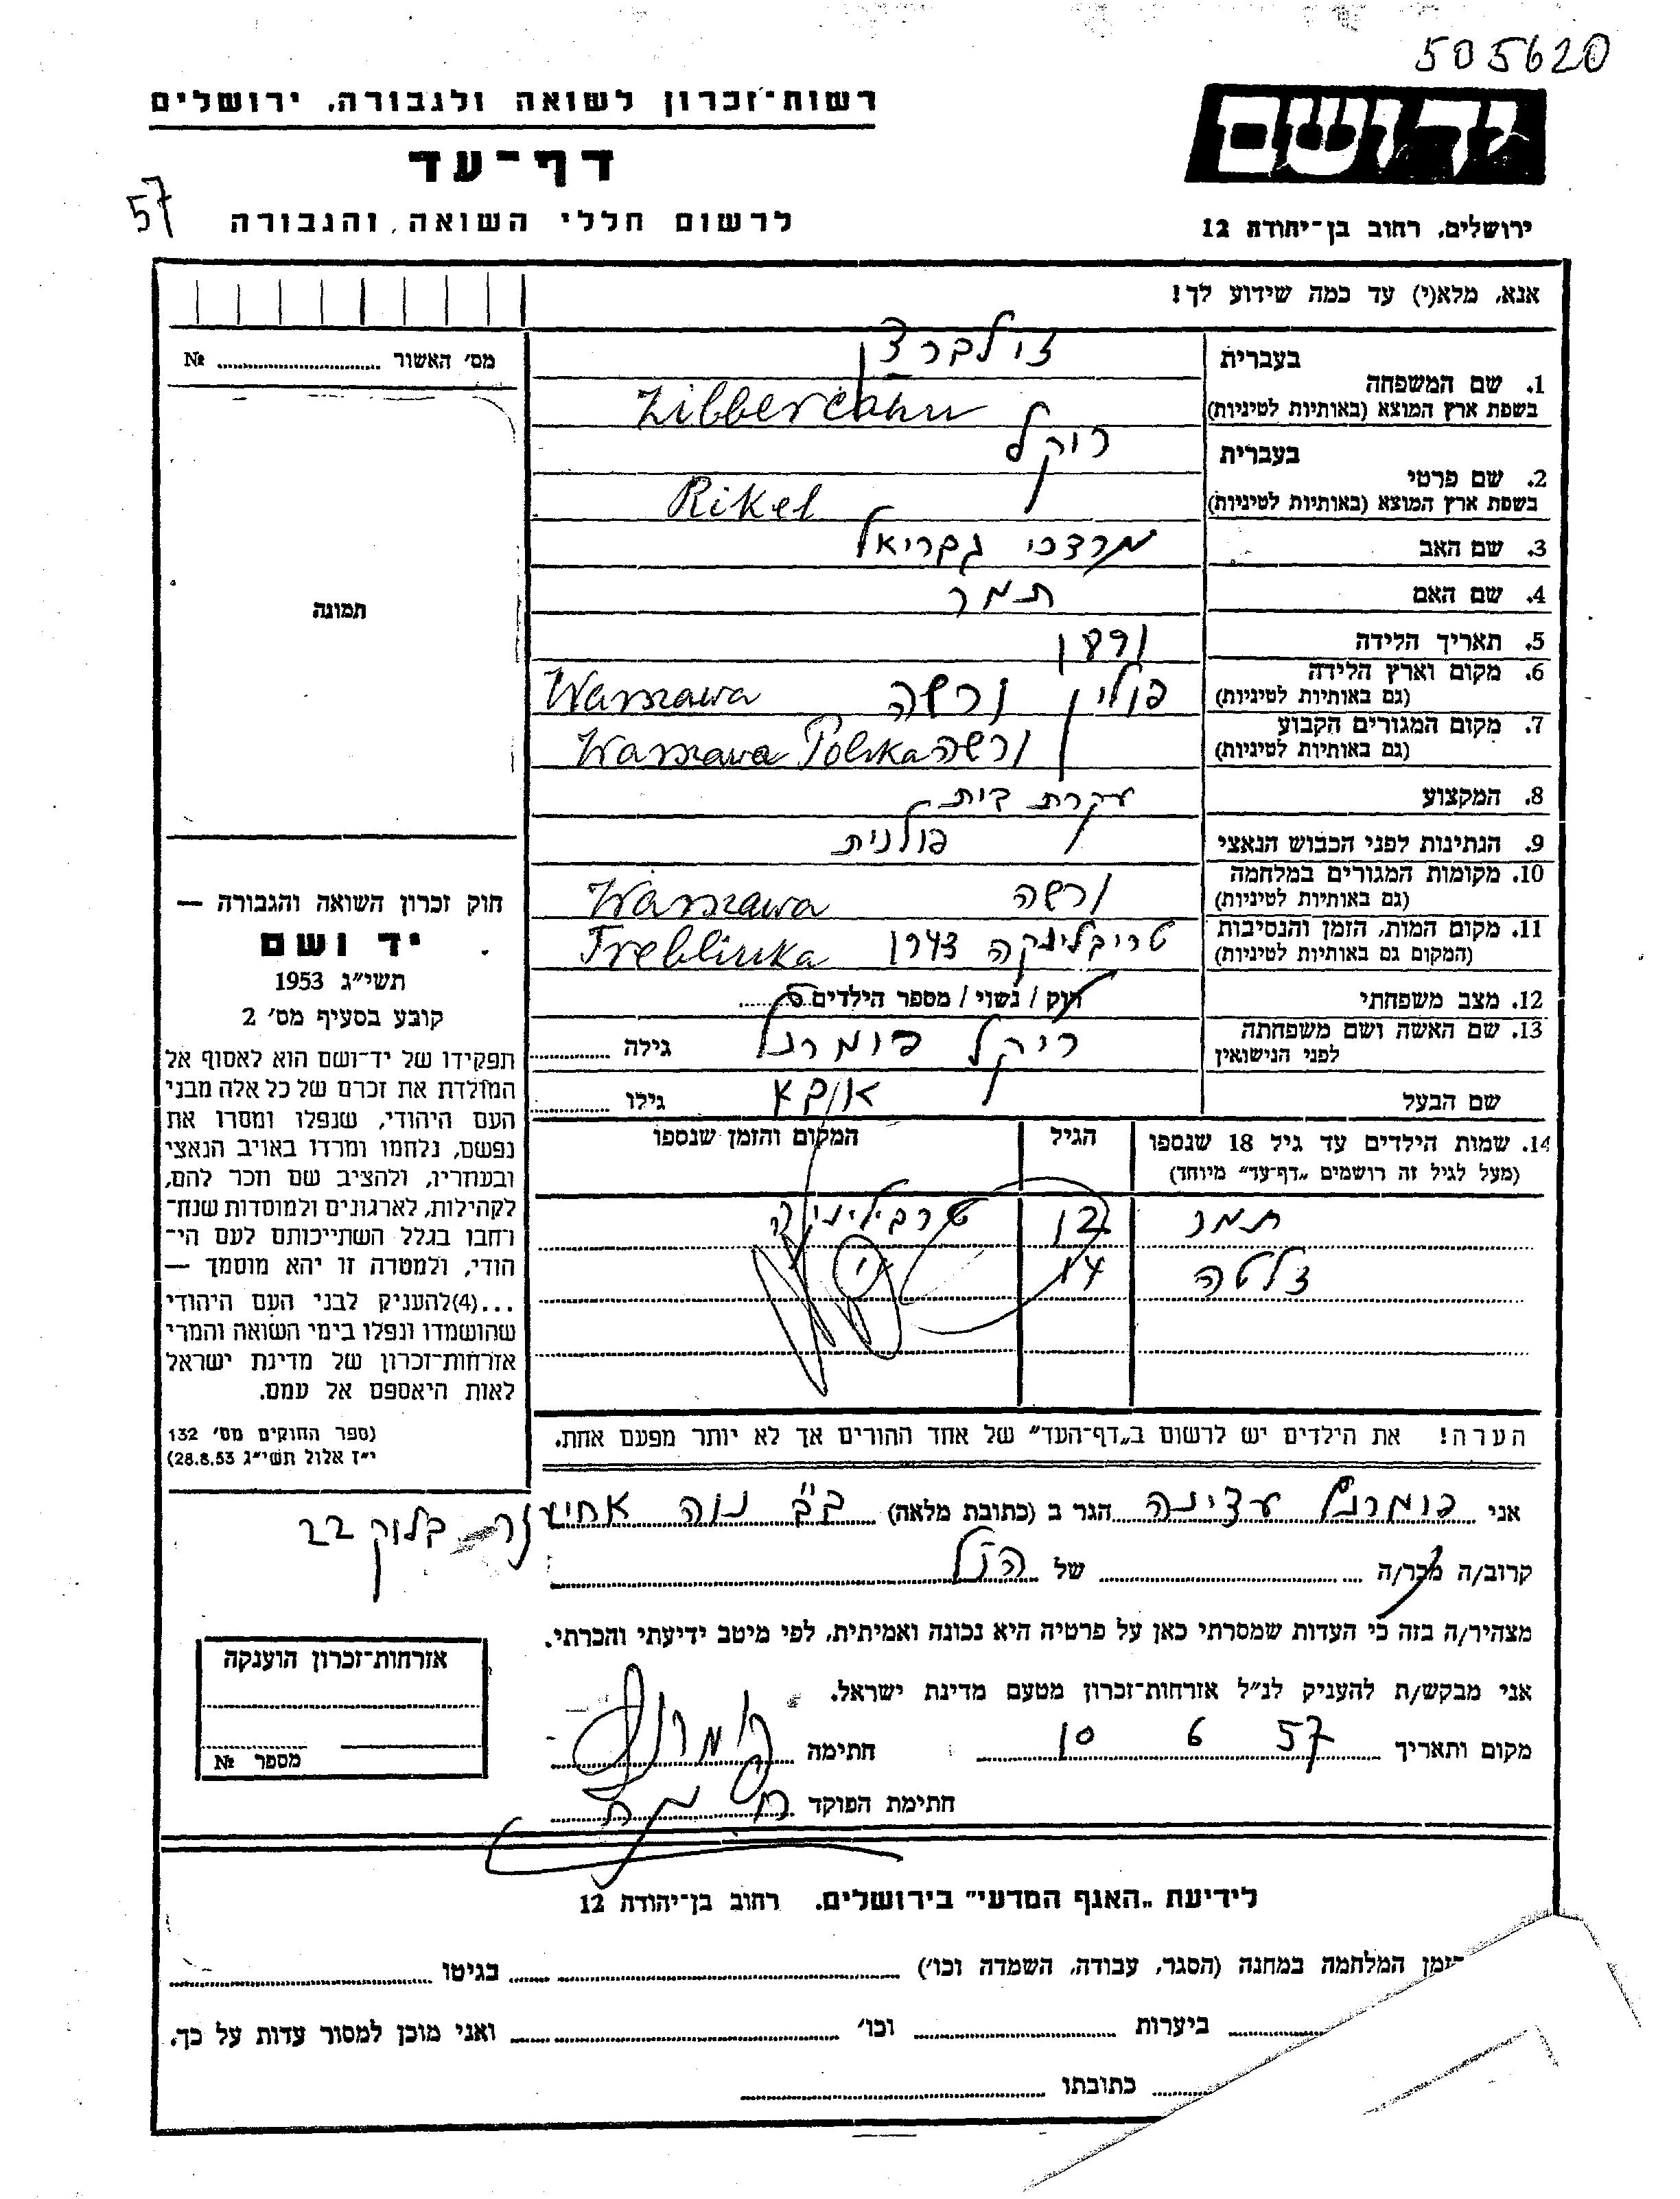 505620
רשות־זכרון לשואה ולגבורה, ירושלים
יד ושם
דף־עד
57
לרשום חללי השואה והגבורה
ירושלים, רחוב בן־יהודה 12
אנא, מלא(י) עד כמה שידוע לך!
1. שם המשפחה
בעברית זילברצן
בשפת ארץ המוצא (באותיות לטיניות) Zilbercahn
2. שם פרטי
בעברית ריקל
בשפת ארץ המוצא (באותיות לטיניות) Rikel
3. שם האב מרדכי גבריאל
4. שם האם תמר
5. תאריך הלידה
6. מקום וארץ הלידה פולין ורשה Warszawa
(גם באותיות לטיניות)
7. מקום המגורים הקבוע ורשה Warszawa Polska
(גם באותיות לטיניות)
8. המקצוע עקרת בית
9. הנתינות לפני הכבוש הנאצי פולנית
10. מקומות המגורים במלחמה ורשה Warszawa
(גם באותיות לטיניות)
11. מקום המות, הזמן והנסיבות טריבלינקה 1943 Treblinka
(המקום גם באותיות לטיניות)
12. מצב משפחתי רוק / נשוי / מספר הילדים
13. שם האשה ושם משפחתה ריקל פומרנץ גילה
לפני הנישואין
שם הבעל גילו
14. שמות הילדים עד גיל 18 שנספו הגיל המקום והזמן שנספו
(מעל לגיל זה רושמים „דף־עד” מיוחד)
תמר 12
זלטה 14
הערה! את הילדים יש לרשום ב„דף־העד” של אחד ההורים אך לא יותר מפעם אחת.
אני הגר ב (כתובת מלאה) נוה אחיעזר בלוק 22
קרוב/ה מכר/ה של הנ"ל
מצהיר/ה בזה כי העדות שמסרתי כאן על פרטיה היא נכונה ואמיתית, לפי מיטב ידיעתי והכרתי.
אני מבקש/ת להעניק לנ"ל אזרחות־זכרון מטעם מדינת ישראל.
מקום ותאריך 57 6 10 חתימה
חתימת הפוקד
מס' האשור №
תמונה
חוק זכרון השואה והגבורה —
יד ושם
תשי"ג 1953
קובע בסעיף מס' 2
תפקידו של יד־ושם הוא לאסוף אל
המולדת את זכרם של כל אלה מבני
העם היהודי, שנפלו ומסרו את
נפשם, נלחמו ומרדו באויב הנאצי
ובעוזריו, ולהציב שם וזכר להם,
לקהילות, לארגונים ולמוסדות שנח־
רחבו בגלל השתייכותם לעם הי־
הודי, ולמטרה זו יהא מוסמך —
...(4)להעניק לבני העם היהודי
שהושמדו ונפלו בימי השואה והמרי
אזרחות־זכרון של מדינת ישראל
לאות היאספם אל עמם.
(ספר החוקים מס' 132
י"ז אלול תשי"ג 28.8.53)
אזרחות־זכרון הוענקה
מספר №
לידיעת „האגף המדעי” בירושלים, רחוב בן־יהודה 12
המלחמה במחנה (הסגר, עבודה, השמדה וכו') בגיטו
ביערות וכו' ואני מוכן למסור עדות על כך.
כתובתו